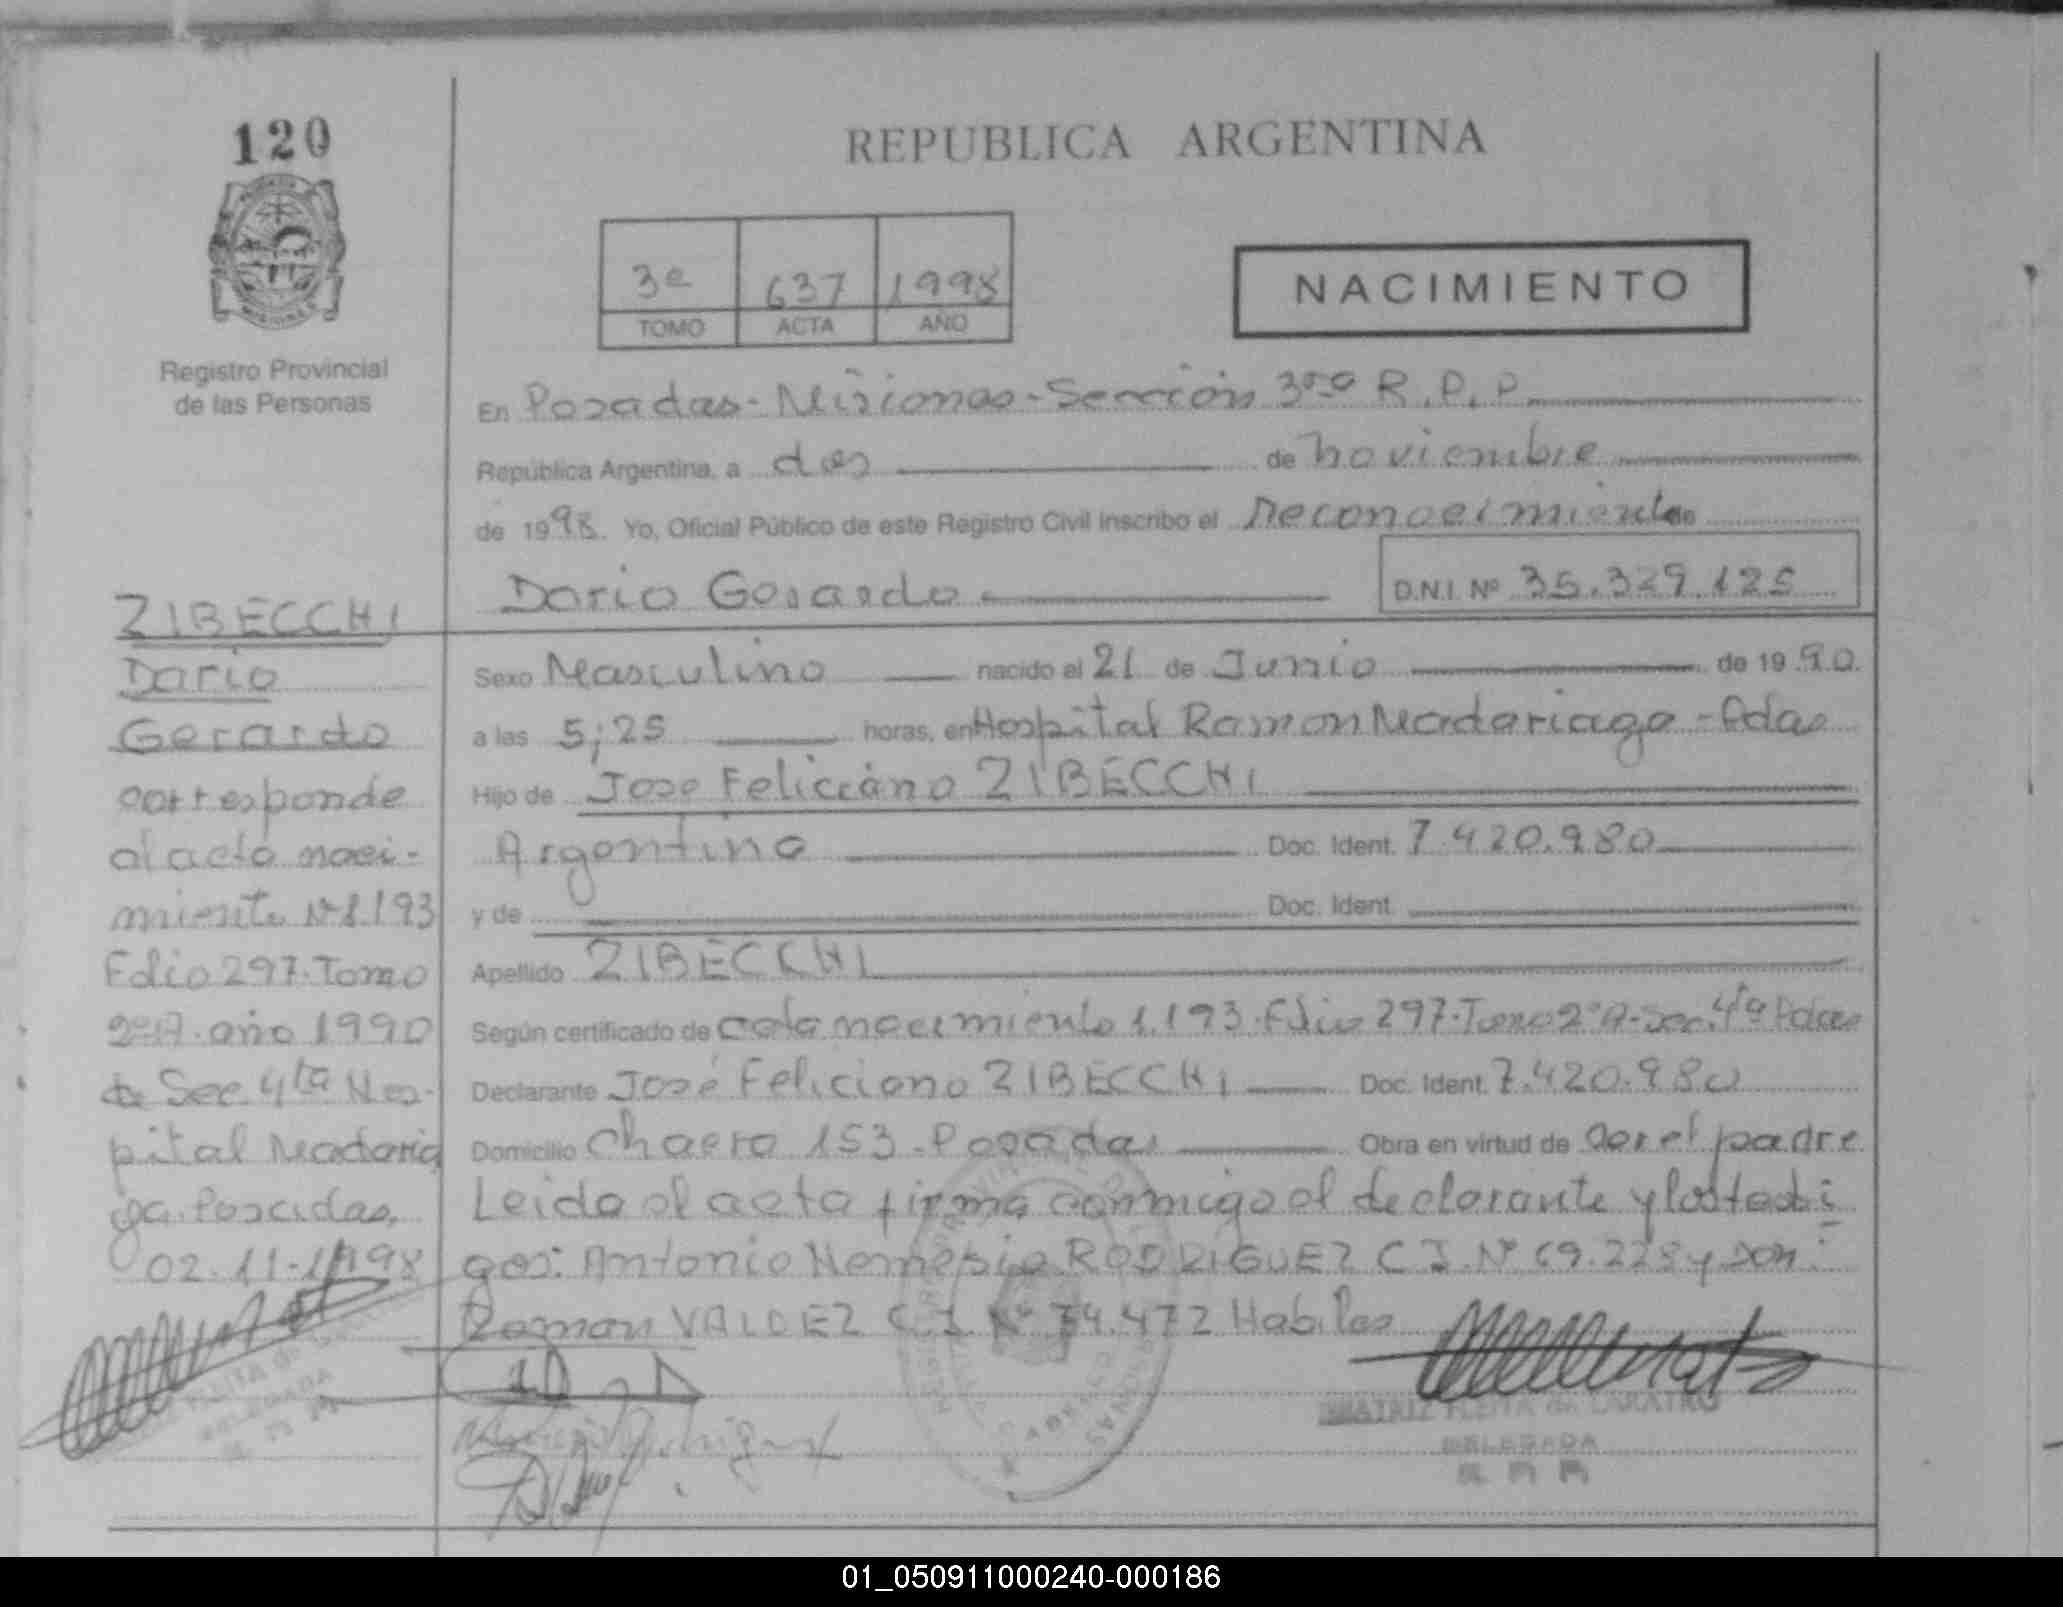 120
REPUBLICA ARGENTINA
3e 637 1998
TOMO ACTA AÑO
NACIMIENTO
Registro Provincial
de las Personas
En Posadas - Misiones - Sección 3ra R.P.P.
República Argentina, a dos de noviembre
de 1998. Yo, Oficial Público de este Registro Civil inscribo el Reconocimiento de
Dario Gerardo D.N.I. Nº 35.329.125
ZIBECCHI
Dario
Gerardo
corresponde
al acta naci-
miento Nº 1.193
Folio 297. Tomo
2º A. año 1990
de Sec. 4ta Hos-
pital Madaria
ga. Posadas,
02-11-1998
Sexo Masculino nacido el 21 de Junio de 1990.
a las 5;25 horas, en Hospital Ramon Madariaga - Pdas
Hijo de Jose Feliciano ZIBECCHI
Argentino Doc. Ident. 7.420.980
y de Doc. Ident.
Apellido ZIBECCHI
Según certificado de acta nacimiento 1.193. Folio 297. Tomo 2º A - Sec. 4ta Pdas
Declarante José Feliciano ZIBECCHI Doc. Ident. 7.420.980
Domicilio Chaco 153 - Posadas Obra en virtud de ser el padre
Leida el acta firma conmigo el declarante y los testi
gos: Antonio Nemesio RODRIGUEZ C.I. Nº 69.228 y don:
Ramon VALDEZ C.I. Nº 74.472 Habiles
BEATRIZ PLEITA de
DELEGADA
01_050911000240-000186